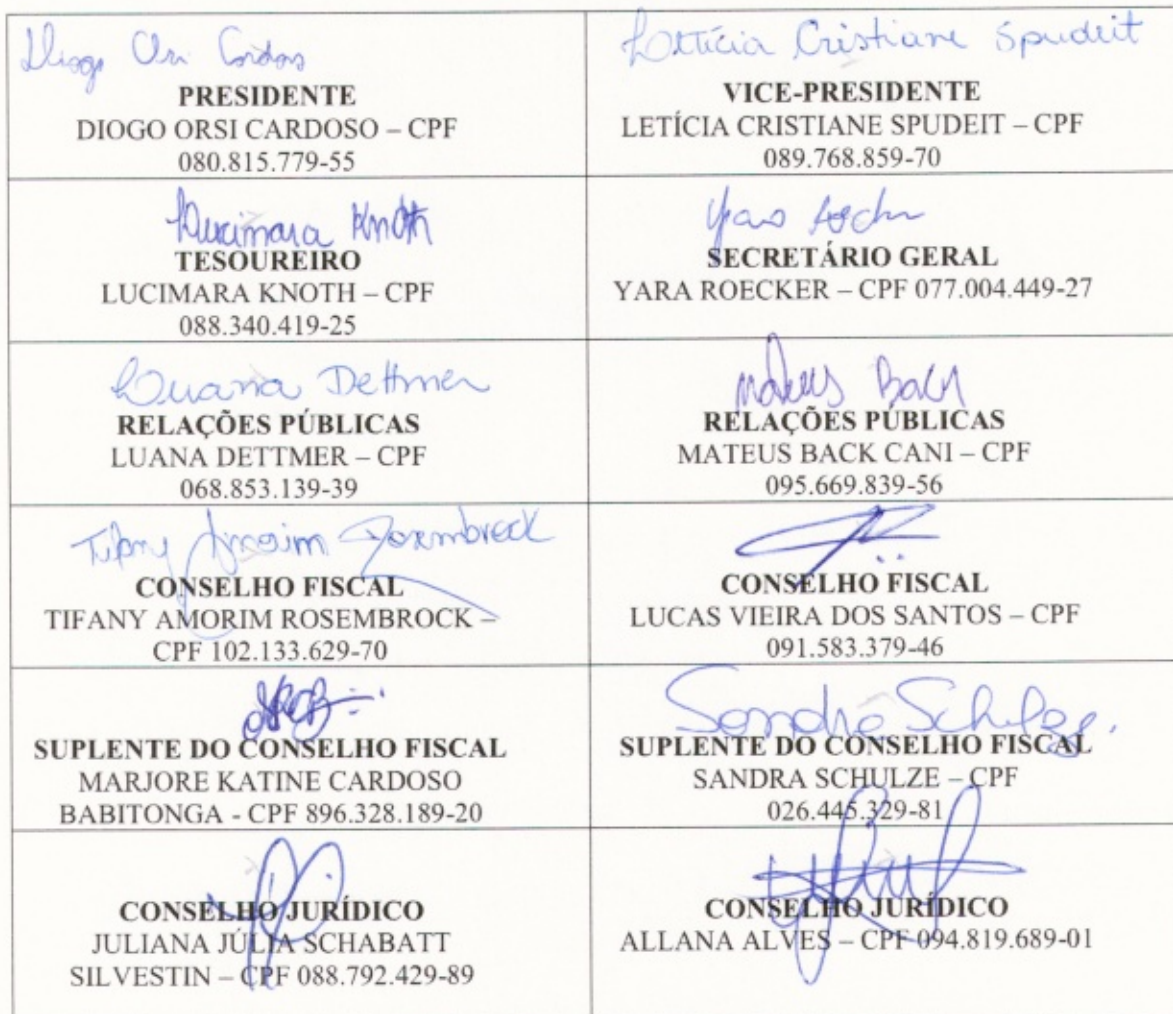 Diogo Orsi Cardoso
PRESIDENTE
DIOGO ORSI CARDOSO – CPF
080.815.779-55
Letícia Cristiane Spudeit
VICE-PRESIDENTE
LETÍCIA CRISTIANE SPUDEIT – CPF
089.768.859-70
Lucimara Knoth
TESOUREIRO
LUCIMARA KNOTH – CPF
088.340.419-25
SECRETÁRIO GERAL
YARA ROECKER – CPF 077.004.449-27
Luana Dettmer
RELAÇÕES PÚBLICAS
LUANA DETTMER – CPF
068.853.139-39
Mateus Back
RELAÇÕES PÚBLICAS
MATEUS BACK CANI – CPF
095.669.839-56
Tifany Amorim Rosembrock
CONSELHO FISCAL
TIFANY AMORIM ROSEMBROCK –
CPF 102.133.629-70
CONSELHO FISCAL
LUCAS VIEIRA DOS SANTOS – CPF
091.583.379-46
SUPLENTE DO CONSELHO FISCAL
MARJORE KATINE CARDOSO
BABITONGA - CPF 896.328.189-20
Sandra Schulze
SUPLENTE DO CONSELHO FISCAL
SANDRA SCHULZE – CPF
026.445.329-81
CONSELHO JURÍDICO
JULIANA JÚLIA SCHABATT
SILVESTIN – CPF 088.792.429-89
CONSELHO JURÍDICO
ALLANA ALVES – CPF 094.819.689-01